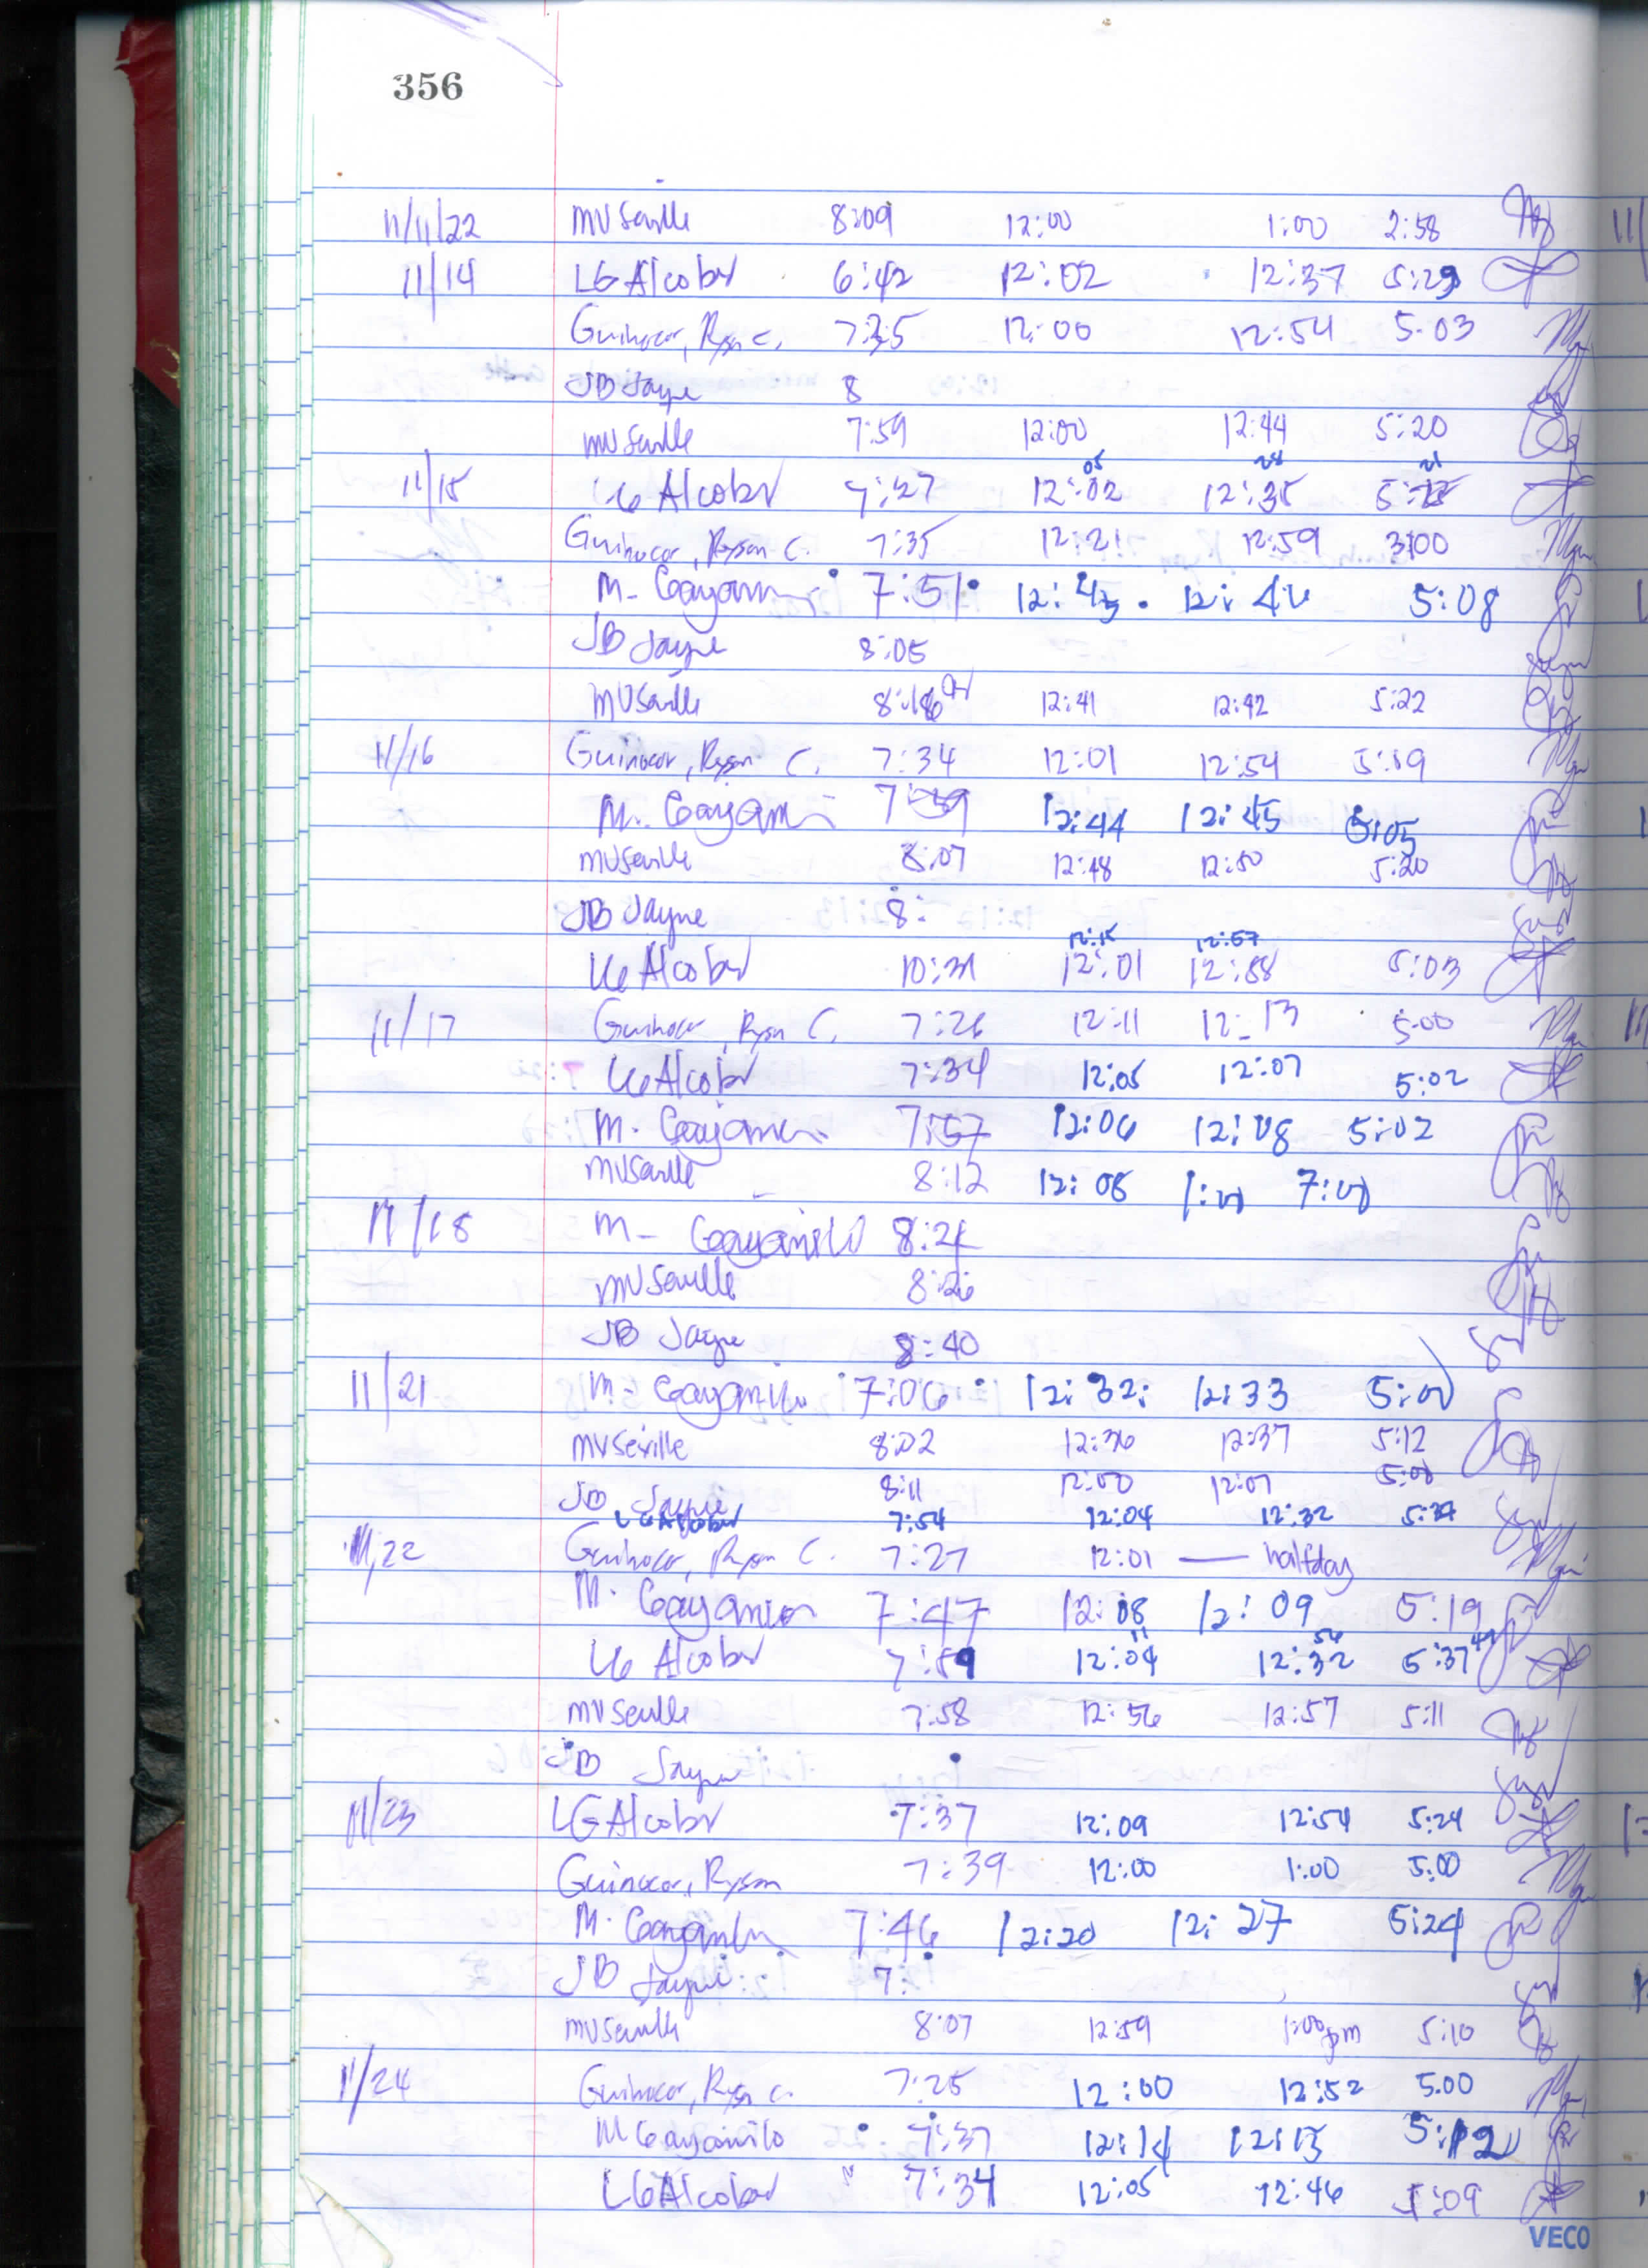 356
11/11/22 MV Seville 8:09 12:00 1:00 2:58
11/14 LG Alcober 6:42 12:02 12:37 5:29
Guinocor, Ryan C. 12:00 12:54 5:03
JB Jayne 8
MV Seville 7:59 12:00 12:44 5:20
05 28 21
11/15 LG Alcober 7:27 12:02 12:35
Guinocor, Ryan C. 7:35 12:21 12:59 3:00
M. Gayanilo 7:51 12:43 5:08
JB Jayne 8:05
MV Seville 12:41 12:42 5:22
11/16 Guinocor, Ryan C. 7:34 12:01 12:54 5:19
M. Gayanilo 12:44 12:45 5:05
MV Seville 8:07 12:48 12:50 5:20
JB Jayne 8:
12:15 12:57
LG Alcober 10:31 12:01 12:58 5:03
11/17 Guinocor, Ryan C. 7:26 12:11 12:13 5:00
LG Alcober 7:34 12:05 12:07 5:02
M. Gayanilo 7:57 12:06 12:08 5:02
MV Seville 8:12 12:08 1:00 7:00
11/18 M. Gayanilo 8:21
MV Seville 8:26
JB Jayne 8:40
11/21 M. Gayanilo 7:06 12:32 12:33 5:00
MV Seville 8:02 12:36 12:37 5:12
JB Jayne 8:11 12:00 12:07 5:00
LG Alcober 7:54 12:04 12:32
11/22 Guinocor, Ryan C. 7:27 12:01 — halfday
M. Gayanilo 7:47 12:08 12:09 5:19
11 56 49
LG Alcober 12:04 12:32 5:37
MV Seville 7:58 12:56 12:57 5:11
JB Jayne
11/23 LG Alcober 7:37 12:09 12:54 5:24
Guinocor, Ryan 7:39 12:00 1:00 5:00
M. Gayanilo 7:46 12:20 12:27 5:24
JB Jayne 7:
MV Seville 8:07 12:59 1:00pm 5:10
11/24 Guinocor, Ryan C. 7:25 12:00 12:52 5.00
M Gayanilo 7:37 12:14 12:15 5:12
LG Alcober 7:34 12:05 12:46 5:09
VECO